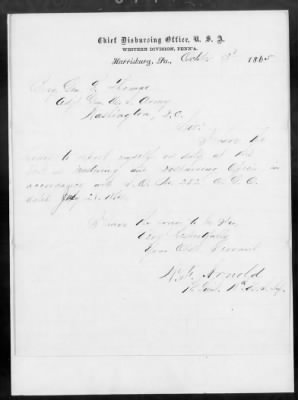 Chief Disbursing Office, U. S. A.
WESTERN DIVISION, PENN'A.
Harrisburg, Pa., Octbr 1865
Brig. Gen. L. Thomas
Adjt. Gen. U. S. Army
Washington, D.C.
Sir:
I have the
honor to report myself on duty at this
Post as Mustering and Disbursing Officer in
accordance with S. O. No.
dated
I have the honor to be Sir
Very Respectfully
Your Obdt. Servant
Arnold